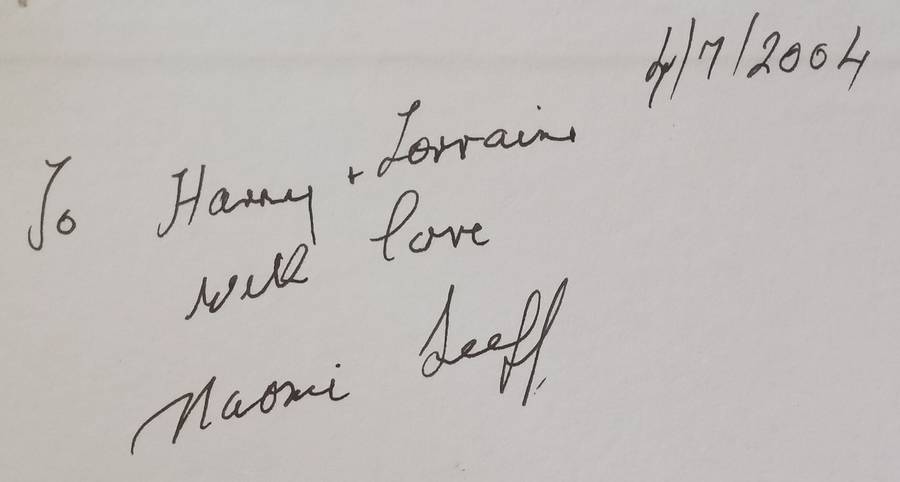 4/7/2004
To Harry + Lorraine
with love
Naomi Leeff